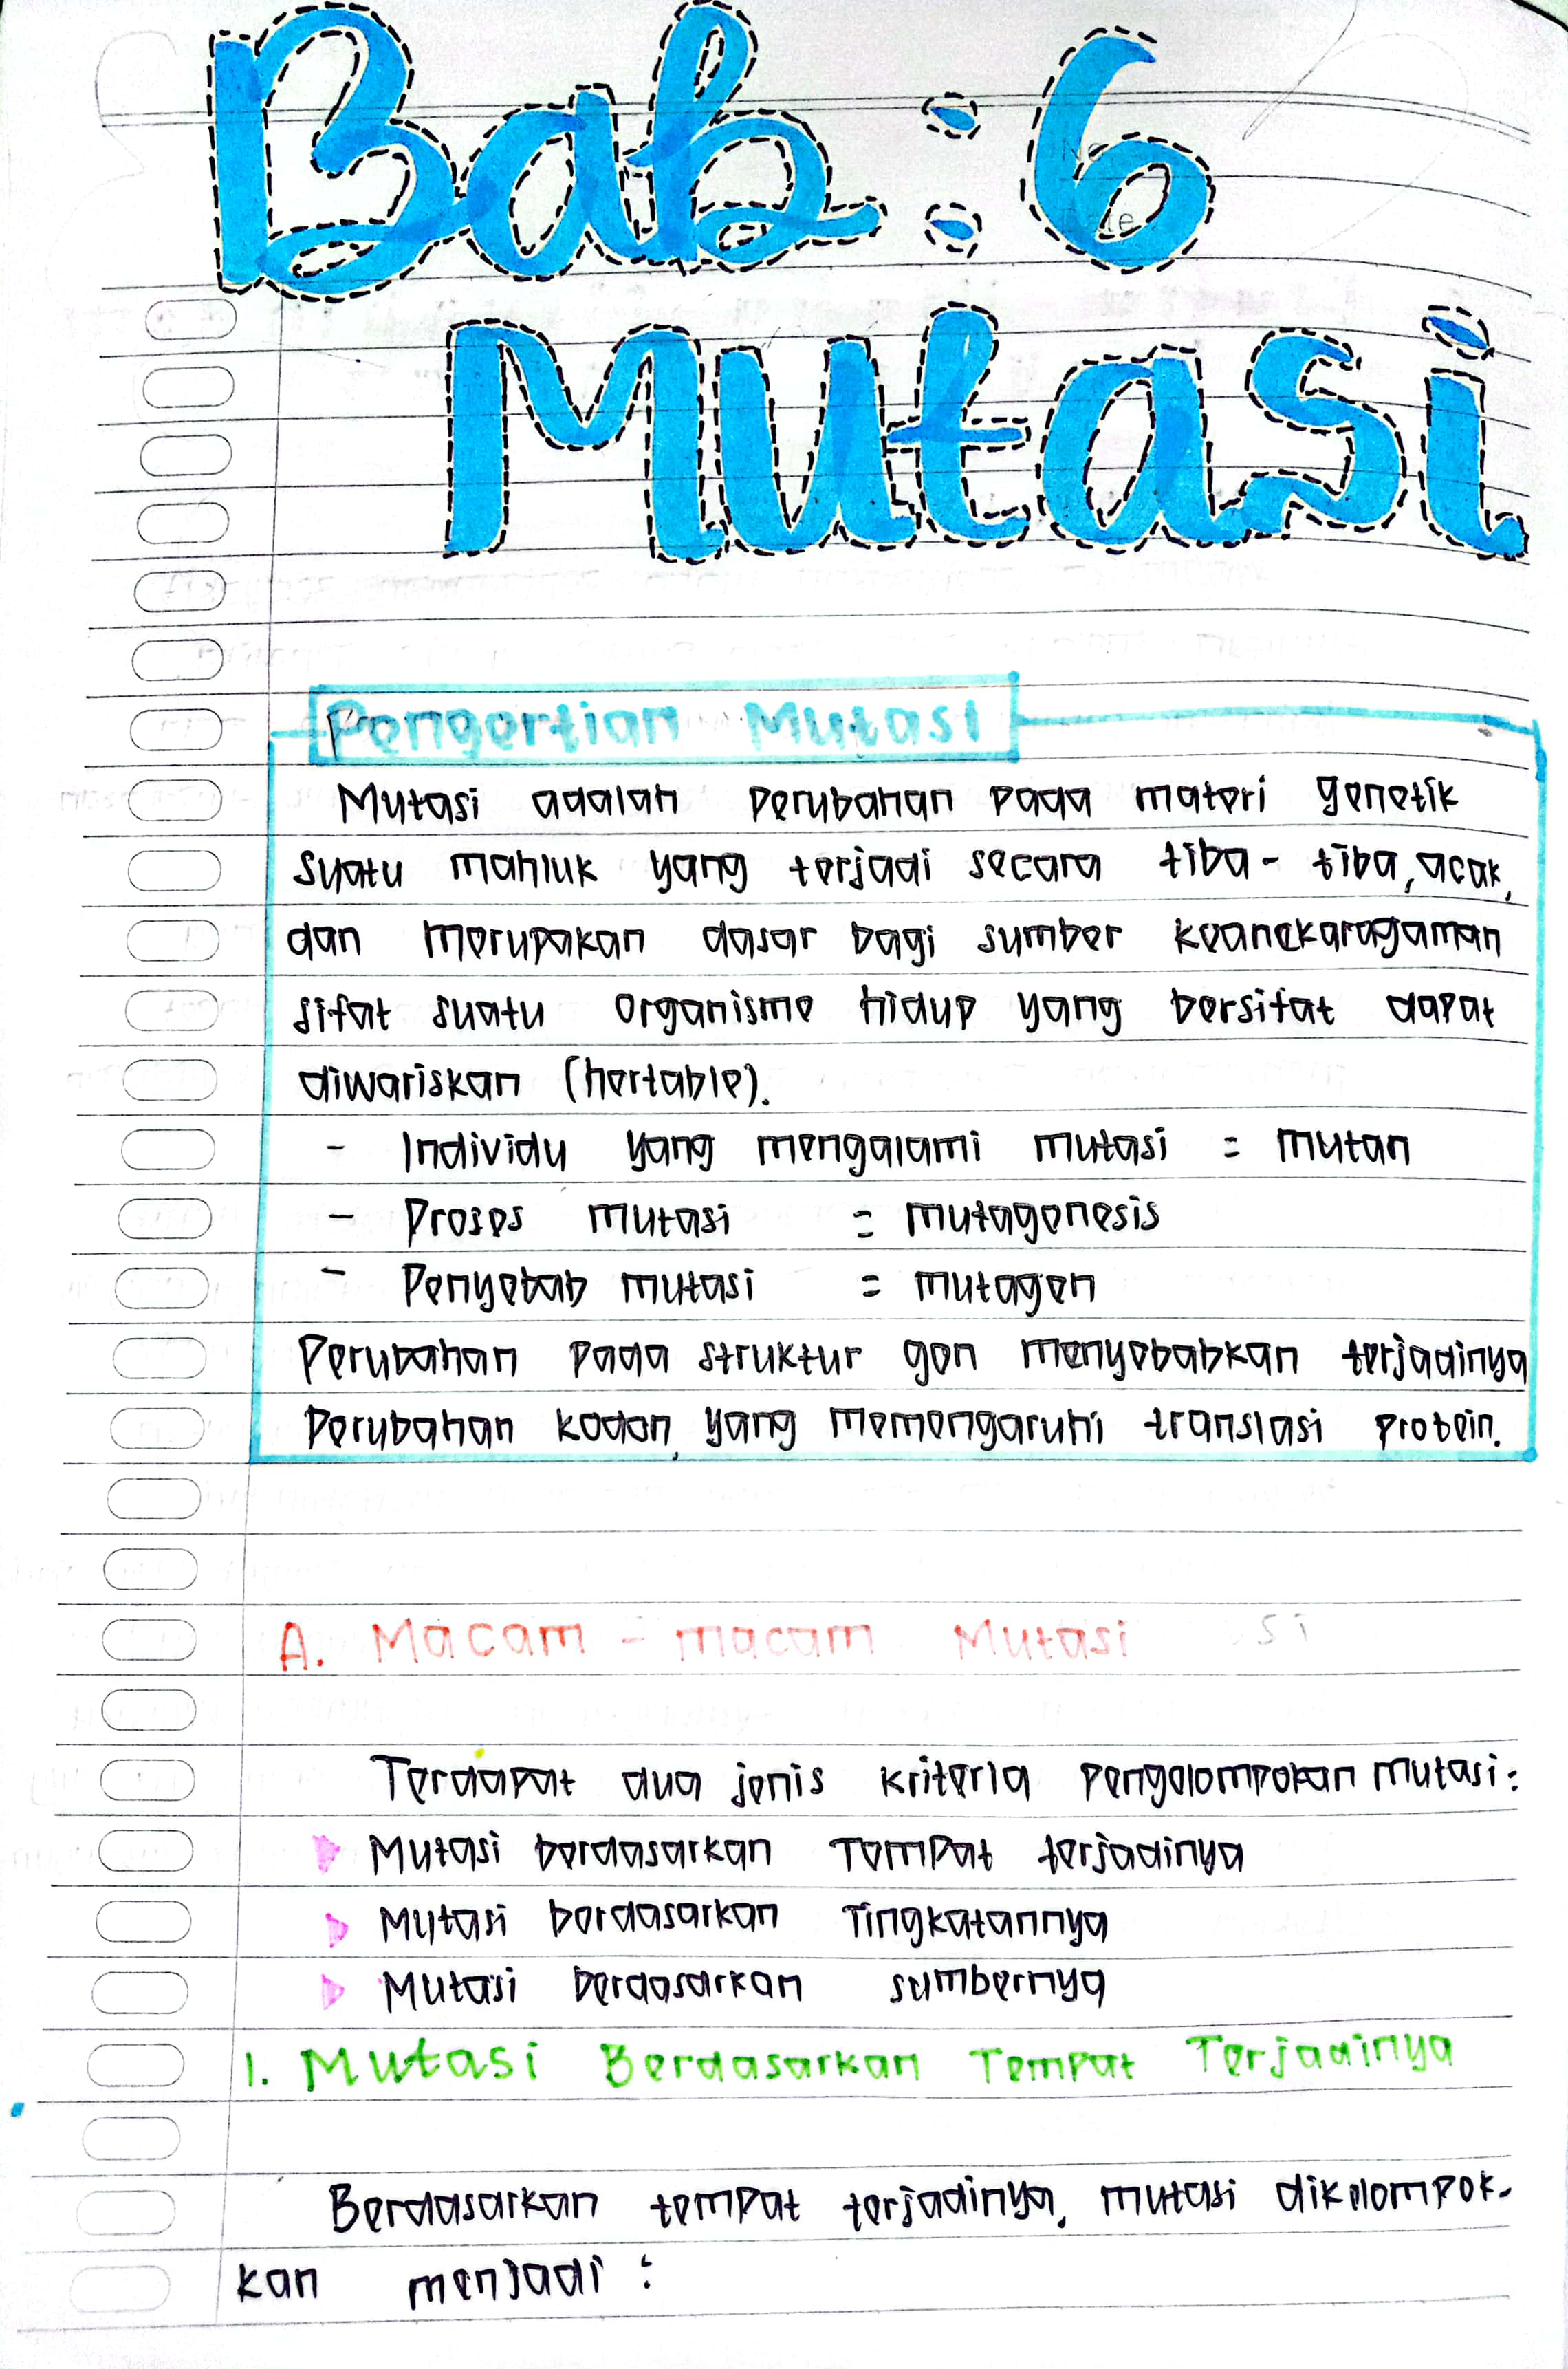 Bab : 6
Mutasi
Pengertian Mutasi
Mutasi adalah perubahan pada materi genetik
suatu mahluk yang terjadi secara tiba - tiba, acak,
dan merupakan dasar bagi sumber keanekaragaman
sifat suatu organisme hidup yang bersifat dapat
diwariskan (hertable).
- Individu yang mengalami mutasi = mutan
- Proses mutasi = mutagenesis
- Penyebab mutasi = mutagen
Perubahan pada struktur gen menyebabkan terjadinya
perubahan kodon, yang memengaruhi translasi protein.
A. Macam - macam Mutasi si
Terdapat dua jenis kriteria pengelompokan mutasi :
Mutasi berdasarkan Tempat terjadinya
Mutasi berdasarkan Tingkatannya
Mutasi berdasarkan sumbernya
1. Mutasi Berdasarkan Tempat Terjadinya
Berdasarkan tempat terjadinya, mutasi dikelompok-
kan menjadi :